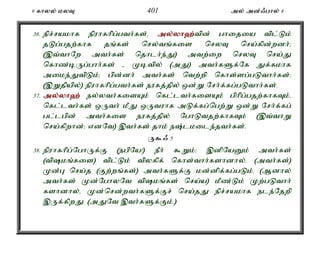 8 காலல் மலவு 401 அல் அன்ஃபால் 8
36. நிச்சயமாக நிராகரிப்பவர்கள், அல்லாஹ்வின் பாதையை விட்டும்
தடுப்பதற்காக தங்கள் செல்வங்களை செலவு செய்கின்றனர்;
(இவ்வாறே அவர்கள் தொடர்ந்து) அவற்றை செலவு செய்து
கொண்டிருப்பார்கள் - முடிவில் (அது) அவர்களுக்கே துக்கமாக
அமைந்துவிடும்; பின்னர் அவர்கள் வெற்றி கொள்ளப்படுவார்கள்;
(இறுதியில்) நிராகரிப்பவர்கள் நரகத்தில் ஒன்று சேர்க்கப்படுவார்கள்.
37. அல்லாஹ் நல்லவர்களையும் கெட்டவர்களையும் பிரிப்பதற்காகவும்,
கெட்டவர்கள் ஒருவர் மீது ஒருவராக அடுக்கப்பெற்று ஒன்று சேர்க்கப்
பட்டபின் அவர்களை நரகத்தில் போடுவதற்காகவும் (இவ்வாறு
செய்கிறான்; எனவே) இவர்கள் தாம் நஷ்டமடைந்தவர்கள்.
ருகூஃ 5
38. நிராகரிப்போருக்கு (நபியே!) நீர் கூறும்; இனியேனும் அவர்கள்
(விஷமங்களை) விட்டும் விலகிக் கொள்வார்களானால், (அவர்கள்)
முன்பு செய்த (குற்றங்கள்) அவர்களுக்கு மன்னிக்கப்படும், (ஆனால்
அவர்கள் முன்போலவே விஷமங்கள் செய்ய) மீண்டும் முற்படுவார்
களானால், முன்சென்றவர்களுக்குச் செய்தது நிச்சயமாக நடந்தேறி
இருக்கிறது (அதுவே இவர்களுக்கும்.)